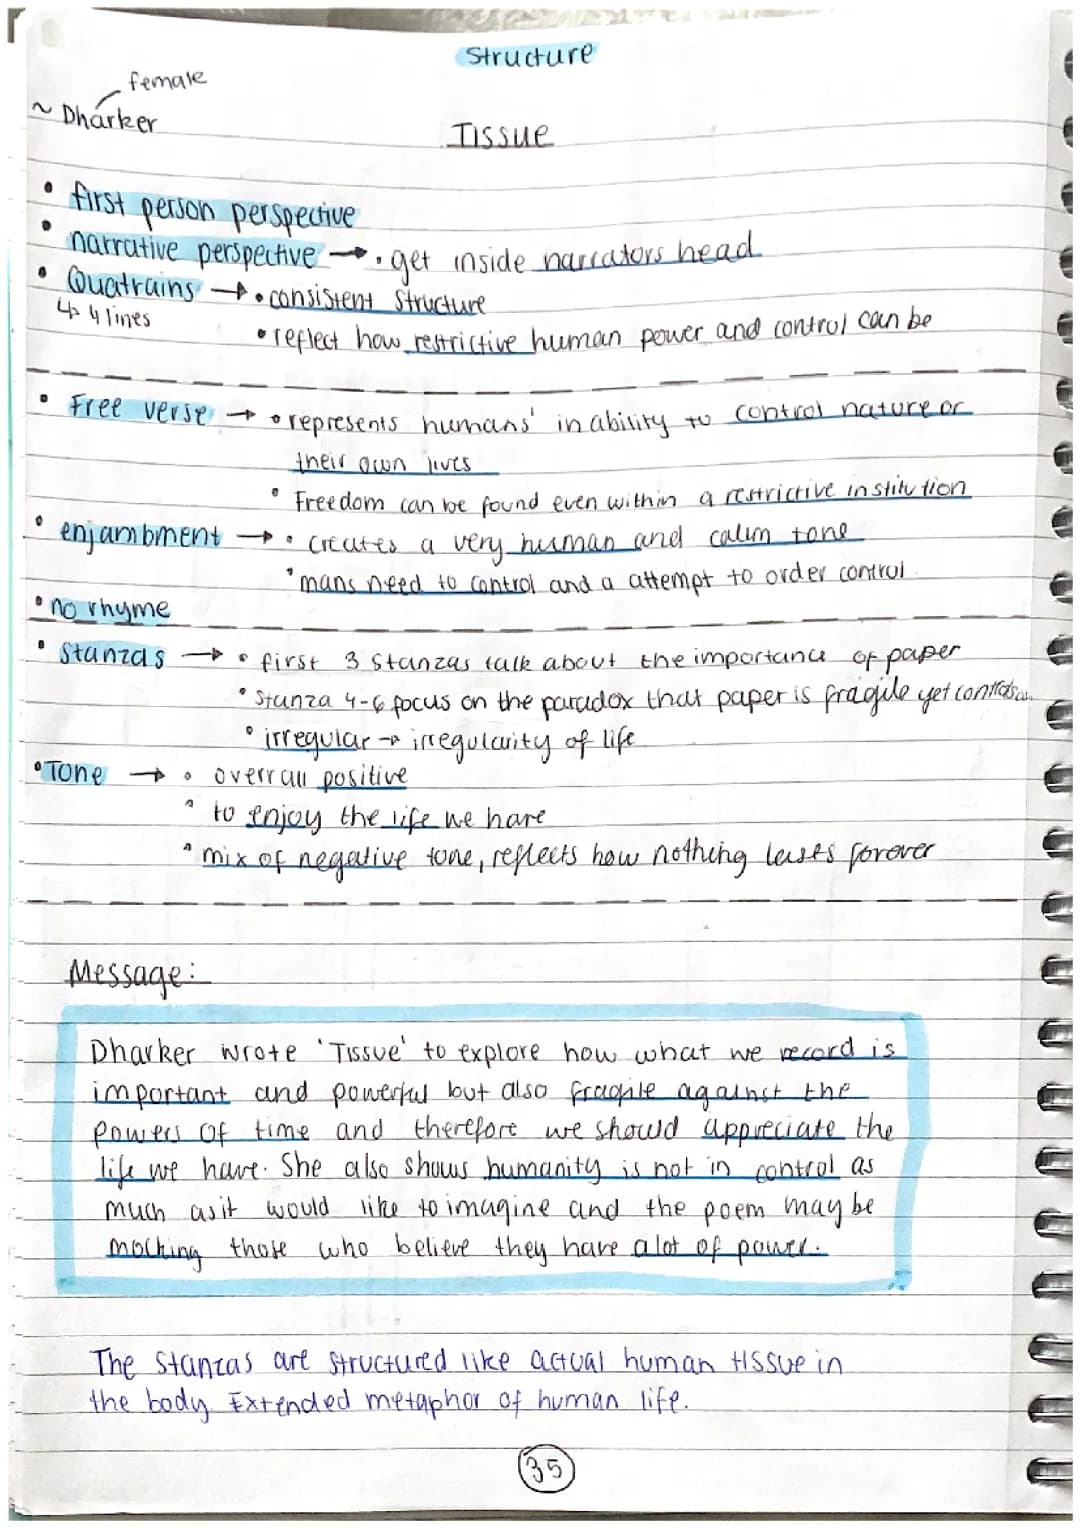 Structure
female
~ Dharker
Tissue
• first person perspective
• narrative perspective → • get inside narrators head
• Quatrains → • consistent structure
↳ 4 lines
• reflect how restrictive human power and control can be
• Free verse → • represents humans' inability to control nature or
their own lives
• Freedom can be found even within a restrictive institution
• enjambment → • creates a very human and calm tone
• mans need to control and a attempt to order control
• no rhyme
• Stanzas → • first 3 stanzas talk about the importance of paper
• Stanza 4-6 focus on the paradox that paper is fragile yet
• irregular → irregularity of life
• Tone → • overrall positive
• to enjoy the life we have
• mix of negative tone, reflects how nothing lasts forever
Message:
Dharker wrote 'Tissue' to explore how what we record is
important and powerful but also fragile against the
powers of time and therefore we should appreciate the
life we have. She also shows humanity is not in control as
much as it would like to imagine and the poem may be
mocking those who believe they have a lot of power.
The stanzas are structured like actual human tissue in
the body. Extended metaphor of human life.
35